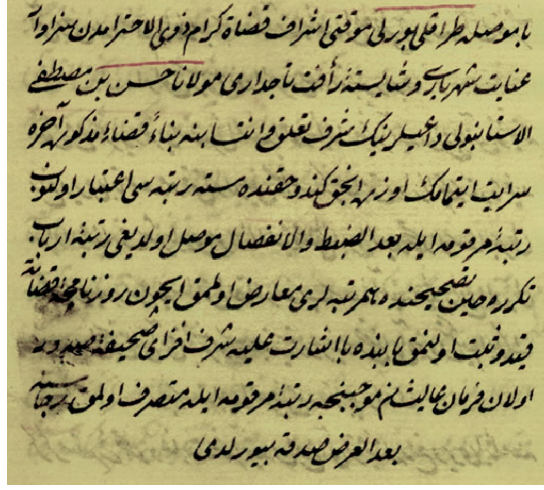 با موصله طرابلي يورلى موقتى اشراف قضاة كرام ذوى الاحترامدن سزاوار
عنايت شهريارى و شايستۀ رأفت تاجدارى مولانا حسن بن مصطفى
الاستانبولى داعيلرينك شرف تعلق و انتسابنه بناءً قضاء مذكورى آخره
سرايت ايتمامك اوزره انجق كندو حقنده سته رتبه سى اعتبار اولنوب
رتبۀ مرقومه ايله بعد الضبط والانفصال موصل اولديغى رتبۀ ارباب
تكرره حين تصحيحنده همرتبه لرى معارض اولمامق ايچون روزنامچۀ قضاته
قيد و ثبت اولنمق بابنده با اشارت عليه شرف افزاى صحيفۀ صدور
اولان فرمان عاليشانم موجبنجه رتبۀ مرقومه ايله متصرف اولمق رجاسنه
بعد العرض صدقه بيورلدى